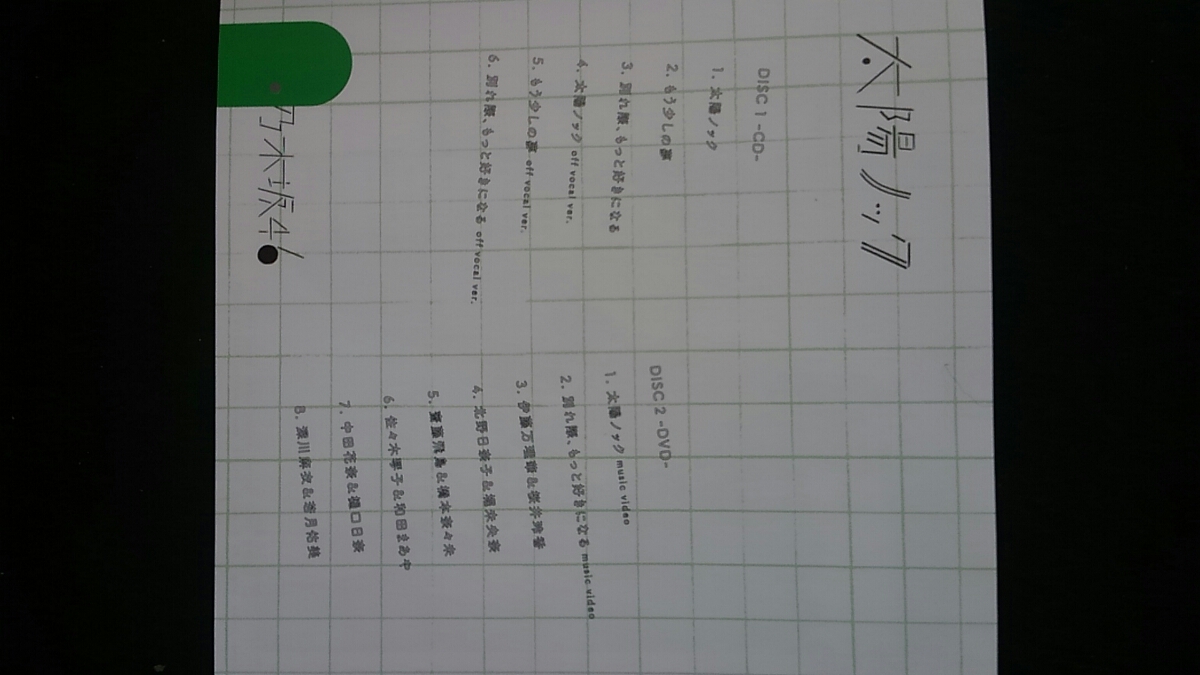 太陽ノック
DISC 1 -CD-
1. 太陽ノック
2. もう少しの夢
3. 別れ際、もっと好きになる
4. 太陽ノック off vocal ver.
5. もう少しの夢 off vocal ver.
6. 別れ際、もっと好きになる off vocal ver.
DISC 2 -DVD-
1. 太陽ノック music video
2. 別れ際、もっと好きになる music video
3. 伊藤万理華&桜井玲香
4. 北野日奈子&堀未央奈
5. 齋藤飛鳥&橋本奈々未
6. 佐々木琴子&和田まあや
7. 中田花奈&樋口日奈
8. 深川麻衣&若月佑美
乃木坂46